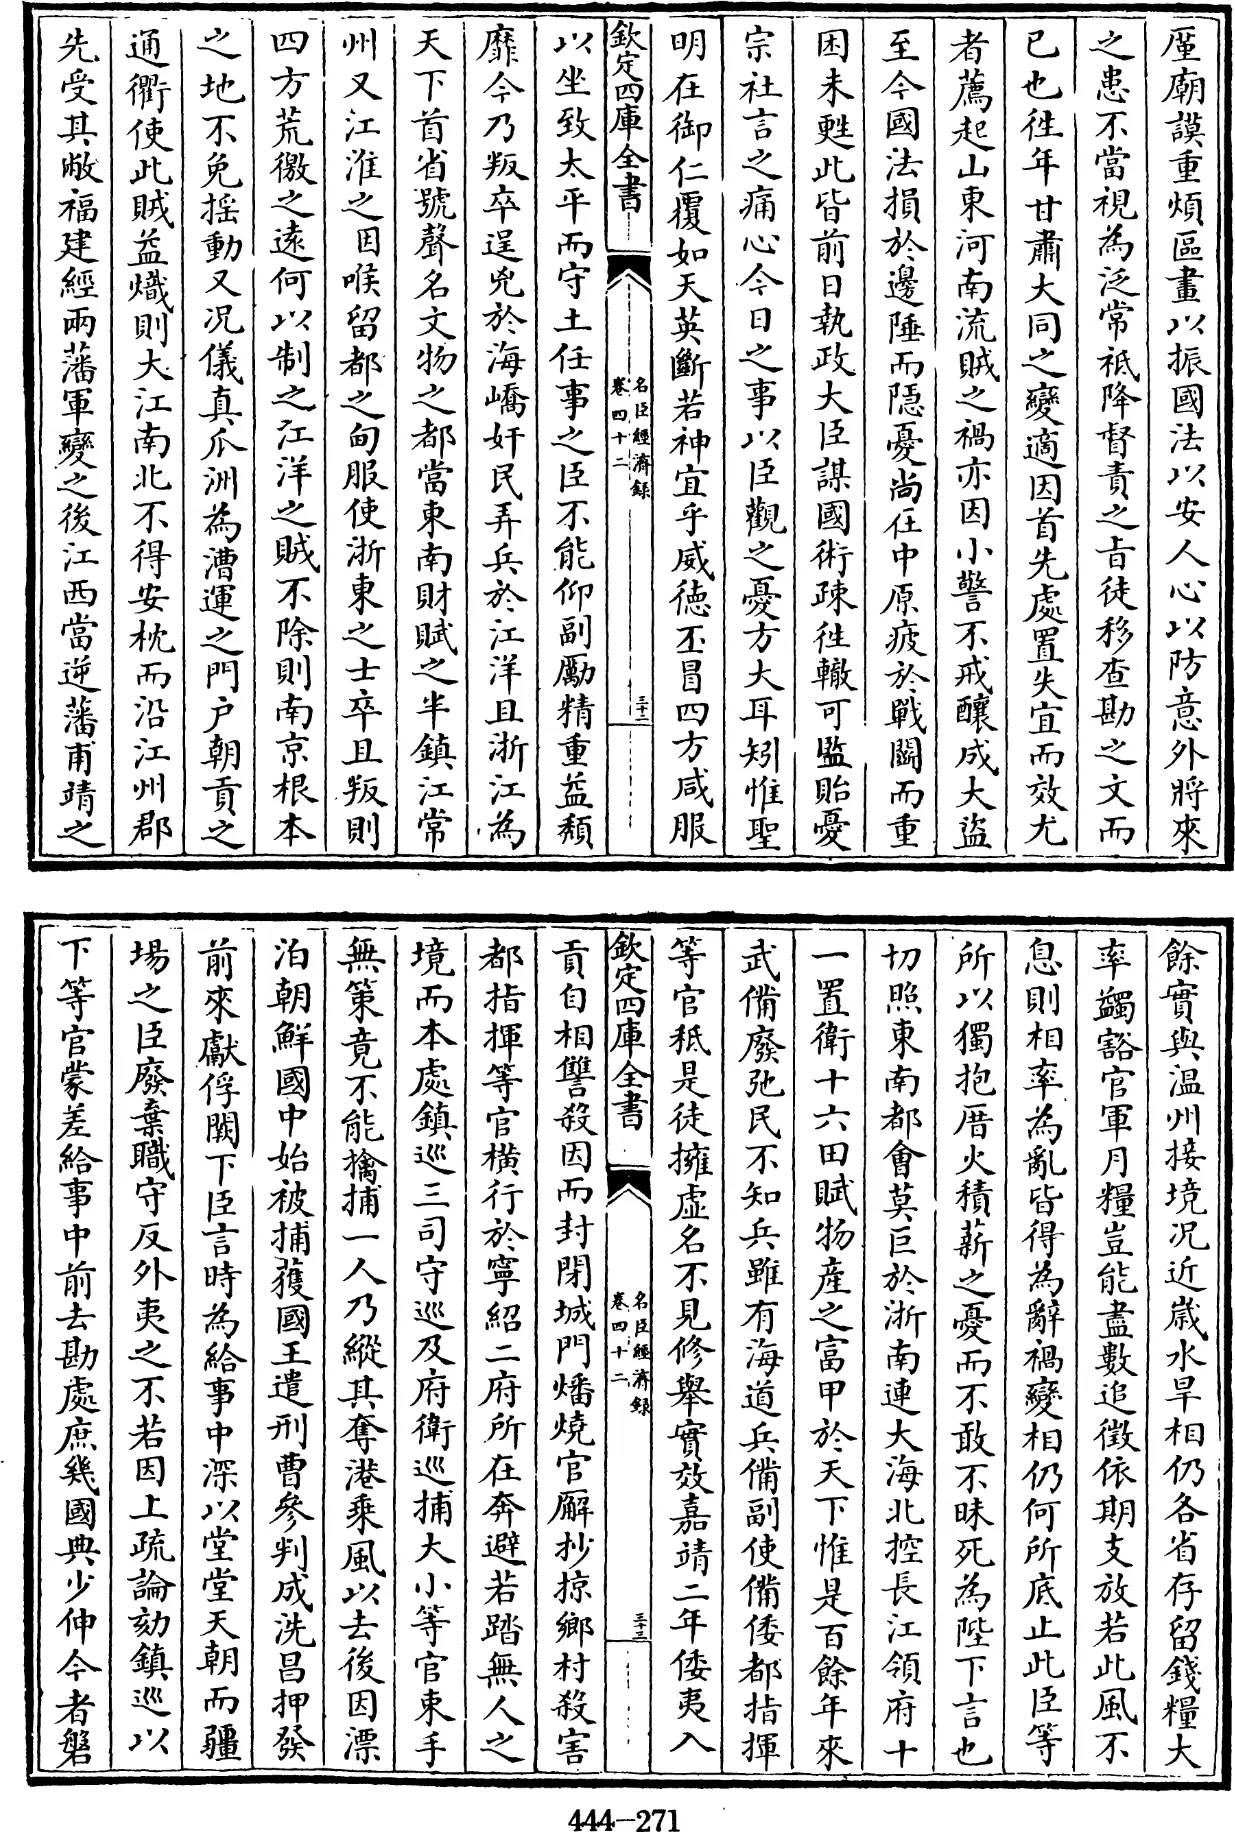 厪廟謨重煩區畫以振國法以安人心以防意外將來
之患不當視為泛常祇降督責之㫖徒移查勘之文而
已也徃年甘肅大同之變適因首先處置失宜而效尤
者薦起山東河南流賊之禍亦因小警不戒釀成大盜
至今國法損於邊陲而隠憂尚在中原疲於戰鬬而重
困未甦此皆前日執政大臣謀國術疎徃轍可監貽憂
宗社言之痛心今日之事以臣觀之憂方大耳矧惟聖
明在御仁覆如天英斷若神宜乎威徳丕冒四方咸服
欽定四庫全書
名臣經濟録
卷四十二
三十二
以坐致太平而守土任事之臣不能仰副勵精重益頹
靡今乃叛卒逞兇於海嶠奸民弄兵於江洋且浙江為
天下首省號聲名文物之都當東南財賦之半鎮江常
州又江淮之因喉留都之甸服使浙東之士卒且叛則
四方荒徼之逺何以制之江洋之賊不除則南京根本
之地不免揺動又况儀真瓜洲為漕運之門户朝貢之
通衢使此賊益熾則大江南北不得安枕而沿江州郡
先受其敝福建經兩藩軍變之後江西當逆藩甫靖之
餘實與温州接境况近嵗水旱相仍各省存留錢糧大
率蠲豁官軍月糧豈能盡數追徵依期支放若此風不
息則相率為亂皆得為辭禍變相仍何所底止此臣等
所以獨抱厝火積薪之憂而不敢不昧死為陛下言也
切照東南都會莫巨於浙南連大海北控長江領府十
一置衛十六田賦物產之富甲於天下惟是百餘年來
武備廢弛民不知兵雖有海道兵備副使備倭都指揮
等官秪是徒擁虛名不見修舉實效嘉靖二年倭夷入
欽定四庫全書
名臣經濟録
卷四十二
三十三
貢自相讐殺因而封閉城門燔燒官廨抄掠鄉村殺害
都指揮等官横行於寧紹二府所在奔避若踏無人之
境而本處鎮巡三司守巡及府衛巡捕大小等官束手
無策竟不能擒捕一人乃縱其奪港乗風以去後因漂
泊朝鮮國中始被捕獲國王遣刑曹參判成洗昌押發
前來獻俘闕下臣言時為給事中深以堂堂天朝而疆
場之臣廢棄職守反外夷之不若因上疏論劾鎮巡以
下等官蒙差給事中前去勘處庶幾國典少伸今者磐
444-271